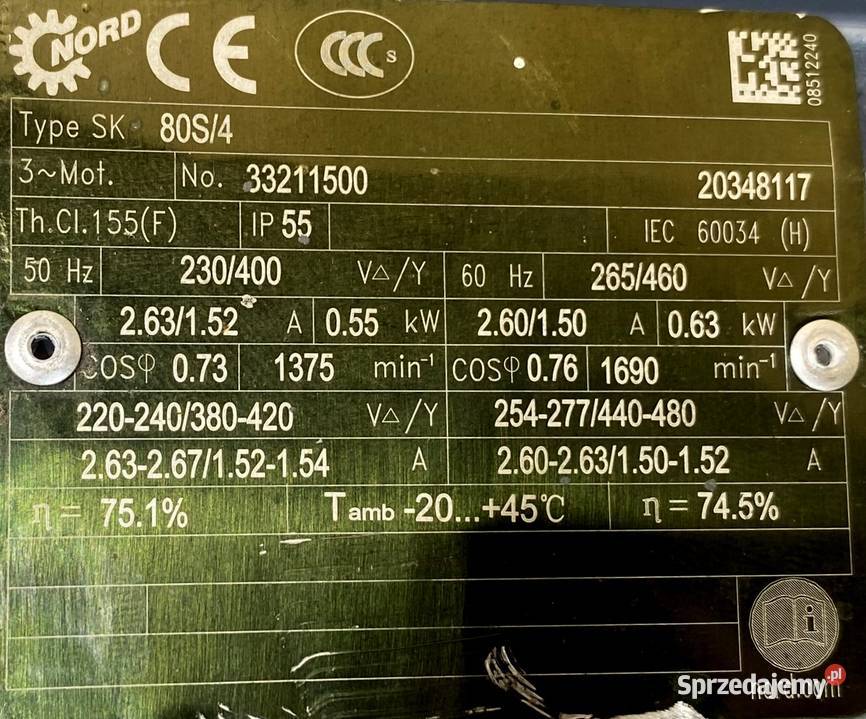 NORD CE CCC S
08512240
Type SK 80S/4
3~Mot. No. 33211500 20348117
Th.Cl.155(F) IP 55 IEC 60034 (H)
50 Hz 230/400 V△/Y 60 Hz 265/460 V△/Y
2.63/1.52 A 0.55 kW 2.60/1.50 A 0.63 kW
cosφ 0.73 1375 min⁻¹ cosφ 0.76 1690 min⁻¹
220-240/380-420 V△/Y 254-277/440-480 V△/Y
2.63-2.67/1.52-1.54 A 2.60-2.63/1.50-1.52 A
η = 75.1% Tamb -20...+45°C η = 74.5%
i
nord.com
Sprzedajemy.pl